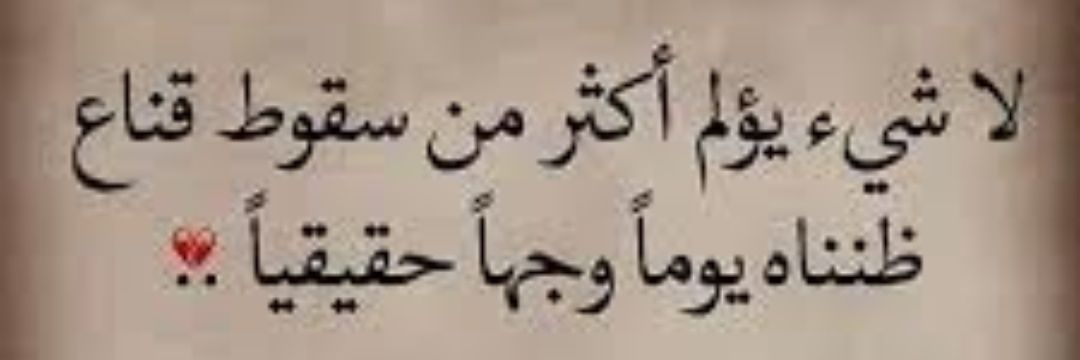 لا شيء يؤلم أكثر من سقوط قناع
ظنناه يوماً وجهاً حقيقياً ..💔